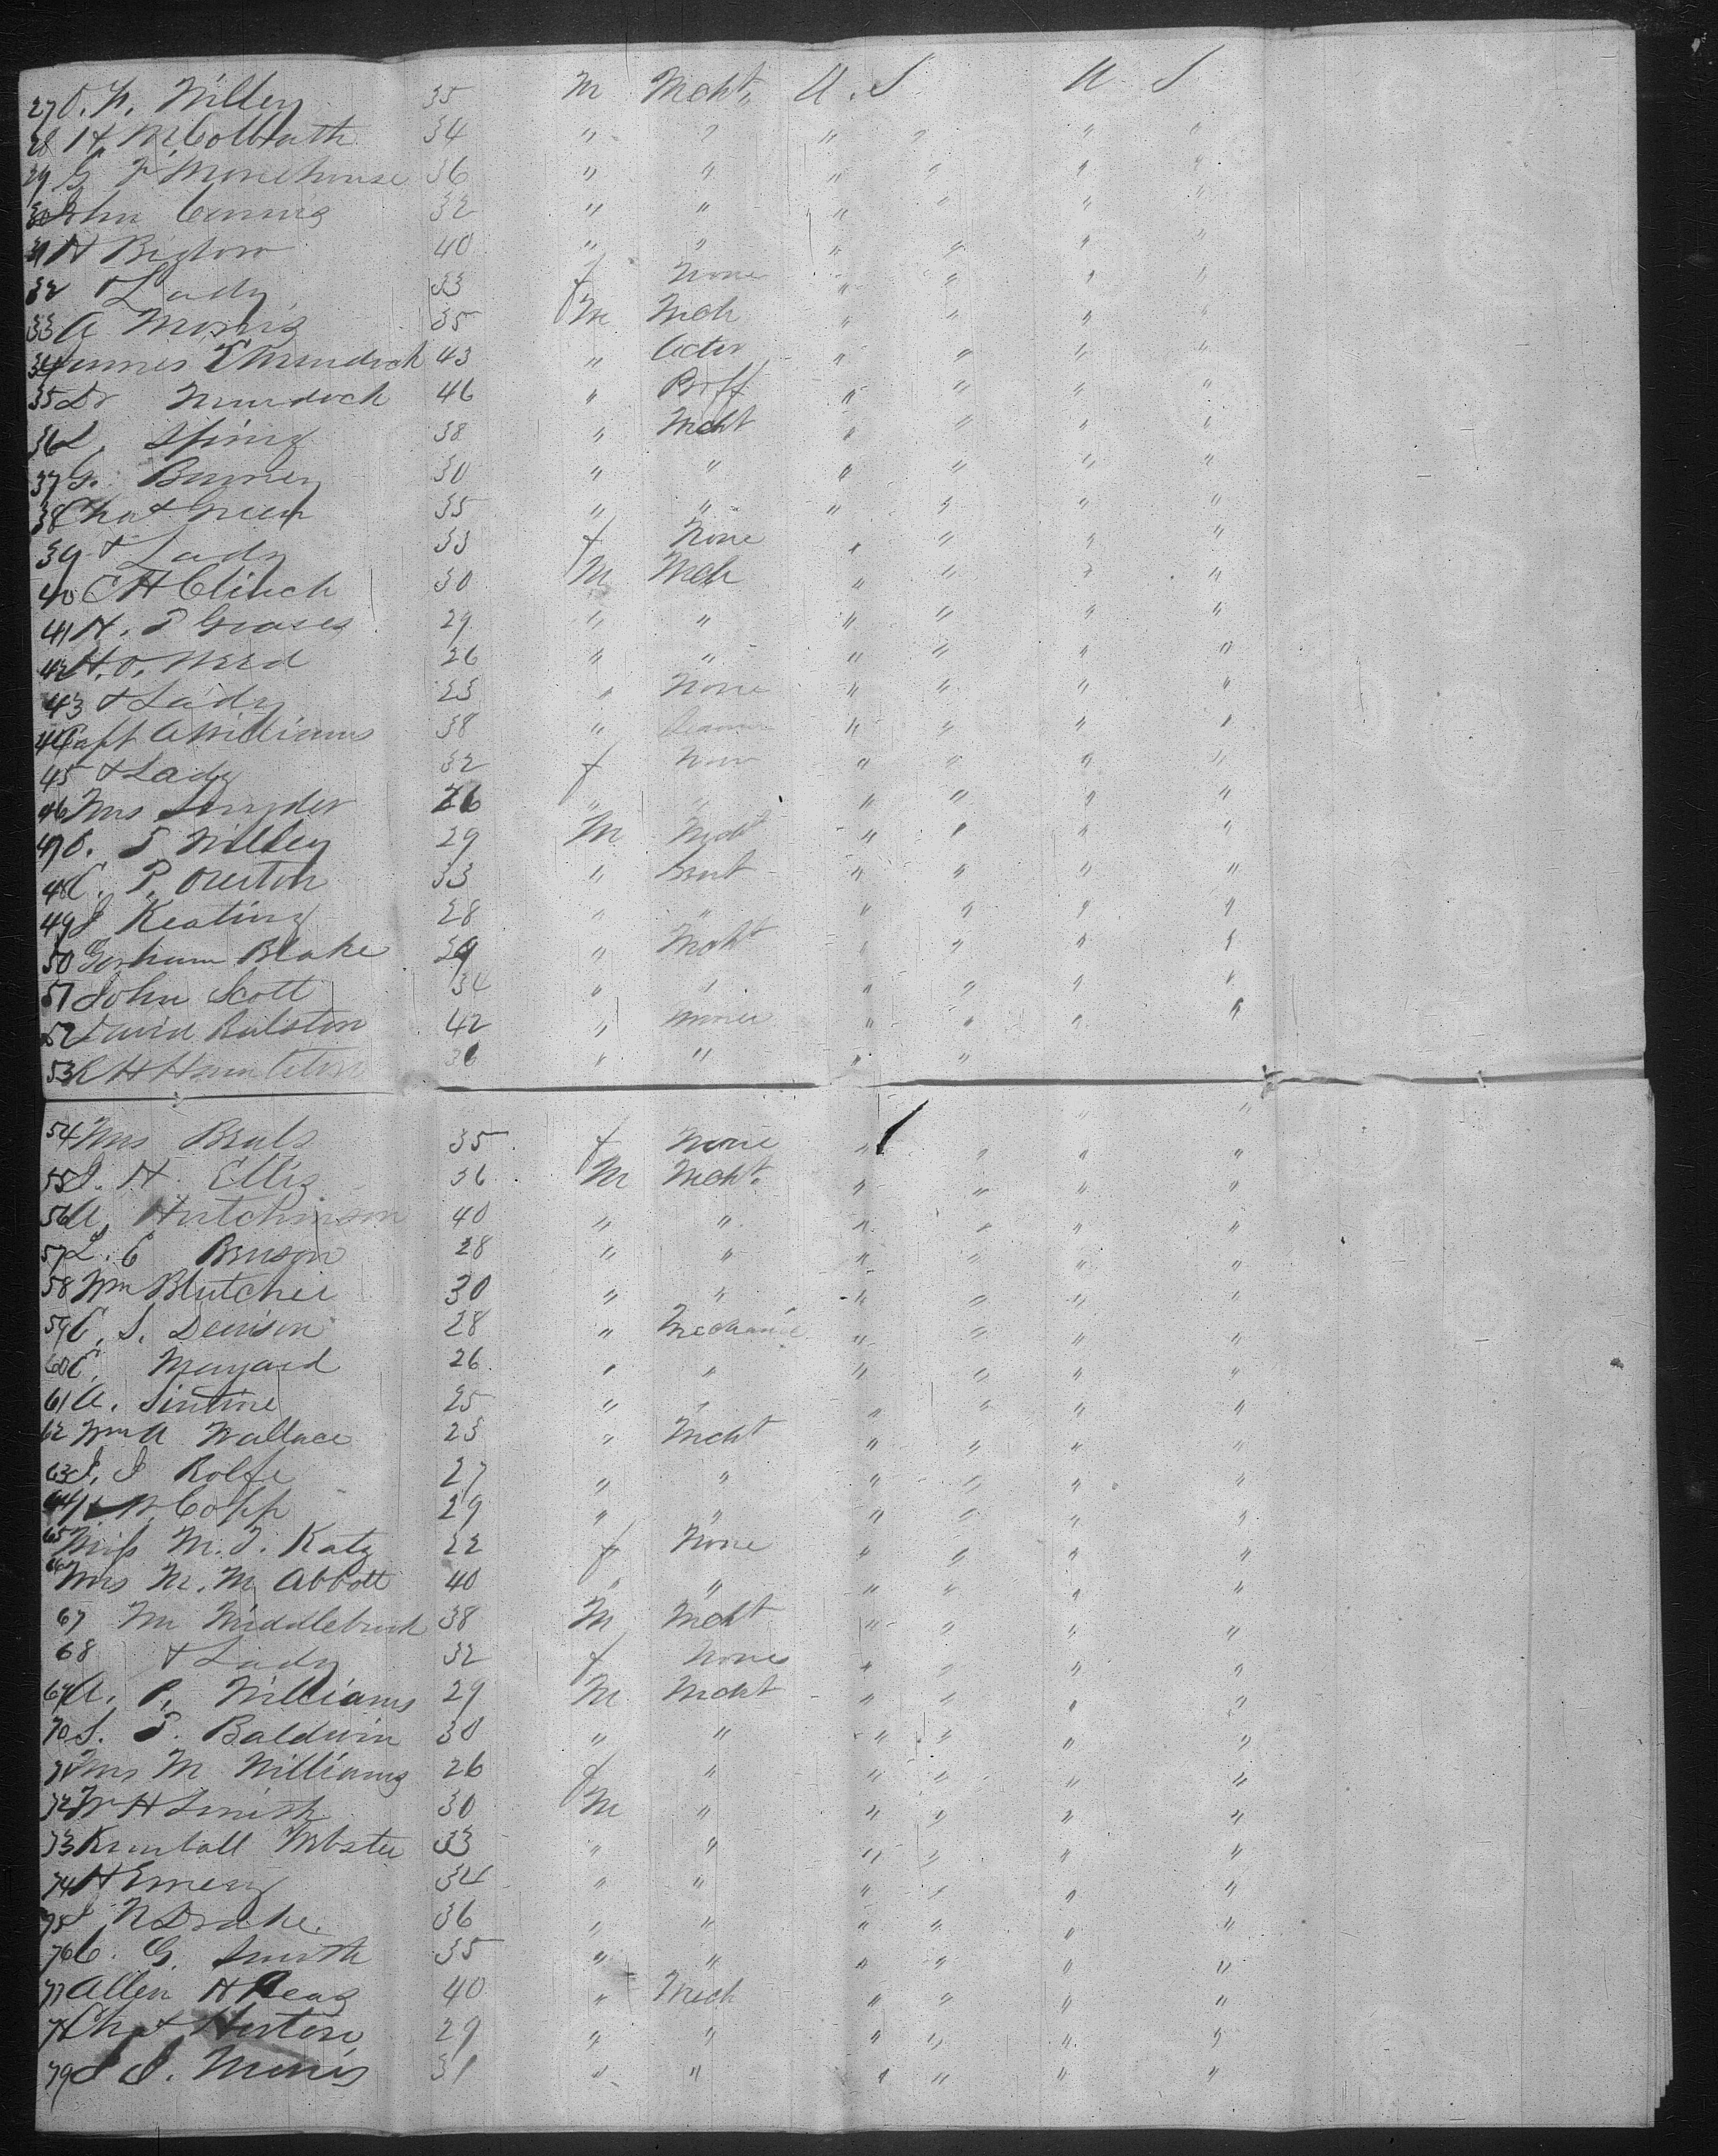 27 O. H. Willey 35 M Mcht. U. S U S
28 H. M Colbath 34 " " " " " "
29 G F Morehouse 36 " " " " " "
30 John 32 " " " " " "
31 H Biglow 40 " " " " " "
32 & Lady 33 f None " " " "
33 A Morris 35 M Mch " " " "
34 James E Murdoch 43 " Actor " " " "
35 Dr Murdock 46 " Proff " " " "
36 L. Spring 38 " Mcht " " " "
37 G. 30 " " " " " "
38 Chas Green 35 " " " " " "
39 & Lady 33 f None " " " "
40 C H Clinch 30 M Mch " " " "
41 H. P Graves 29 " " " " " "
42 H. O. Weed 26 " " " " " "
43 & Lady 23 " None " " " "
44 Capt A Williams 38 " " " " "
45 & Lady 32 f None " " " "
46 Mrs Snyder 26 " " " " " "
47 O. S Willey 29 M Mcht " " " "
48 C. P. Overton 33 " " " " "
49 J Keating 28 " " " " " "
50 Gorham Blake 29 " Mcht " " " "
51 John Scott 34 " " " " " "
52 David Ralston 42 " Miner " " " "
53 R H Hamleton 36 " " " "
54 Mrs Beals 35 f None " " " "
55 J. H. Ellis 36 M Mcht. " " " "
56 A. Hutchinson 40 " " " " " "
57 L. C Benson 28 " " " " " "
58 Wm Blutcher 30 " " " " " "
59 C. S. Denison 28 " Mechanic " " " "
60 C. Maynard 26 " " " " " "
61 A. Sintine 25 " " " " " "
62 Wm A Wallace 23 " Mcht " " " "
63 J. J Rolfe 27 " " " " " "
64 W. Copp 29 " " " " " "
65 Miss M. J. Katz 22 f None " " " "
66 Mrs M. M Abbott 40 " " " " " "
67 Mr Middlebrook 38 M Mcht " " " "
68 & Lady 32 f None " " " "
69 A. P. Williams 29 M Mcht " " " "
70 S. P. Baldwin 30 " " " " " "
71 Mrs M Williams 26 f " " " " "
72 W H Smith 30 M " " " " "
73 Kimball Webster 33 " " " " " "
74 H Emery 34 " " " " " "
75 J N Drake 36 " " " " " "
76 C. G. Smith 35 " " " " " "
77 Allen H 40 " Mech " " " "
78 Chas Horton 29 " " " " " "
79 J J. Morris 31 " " " " " "